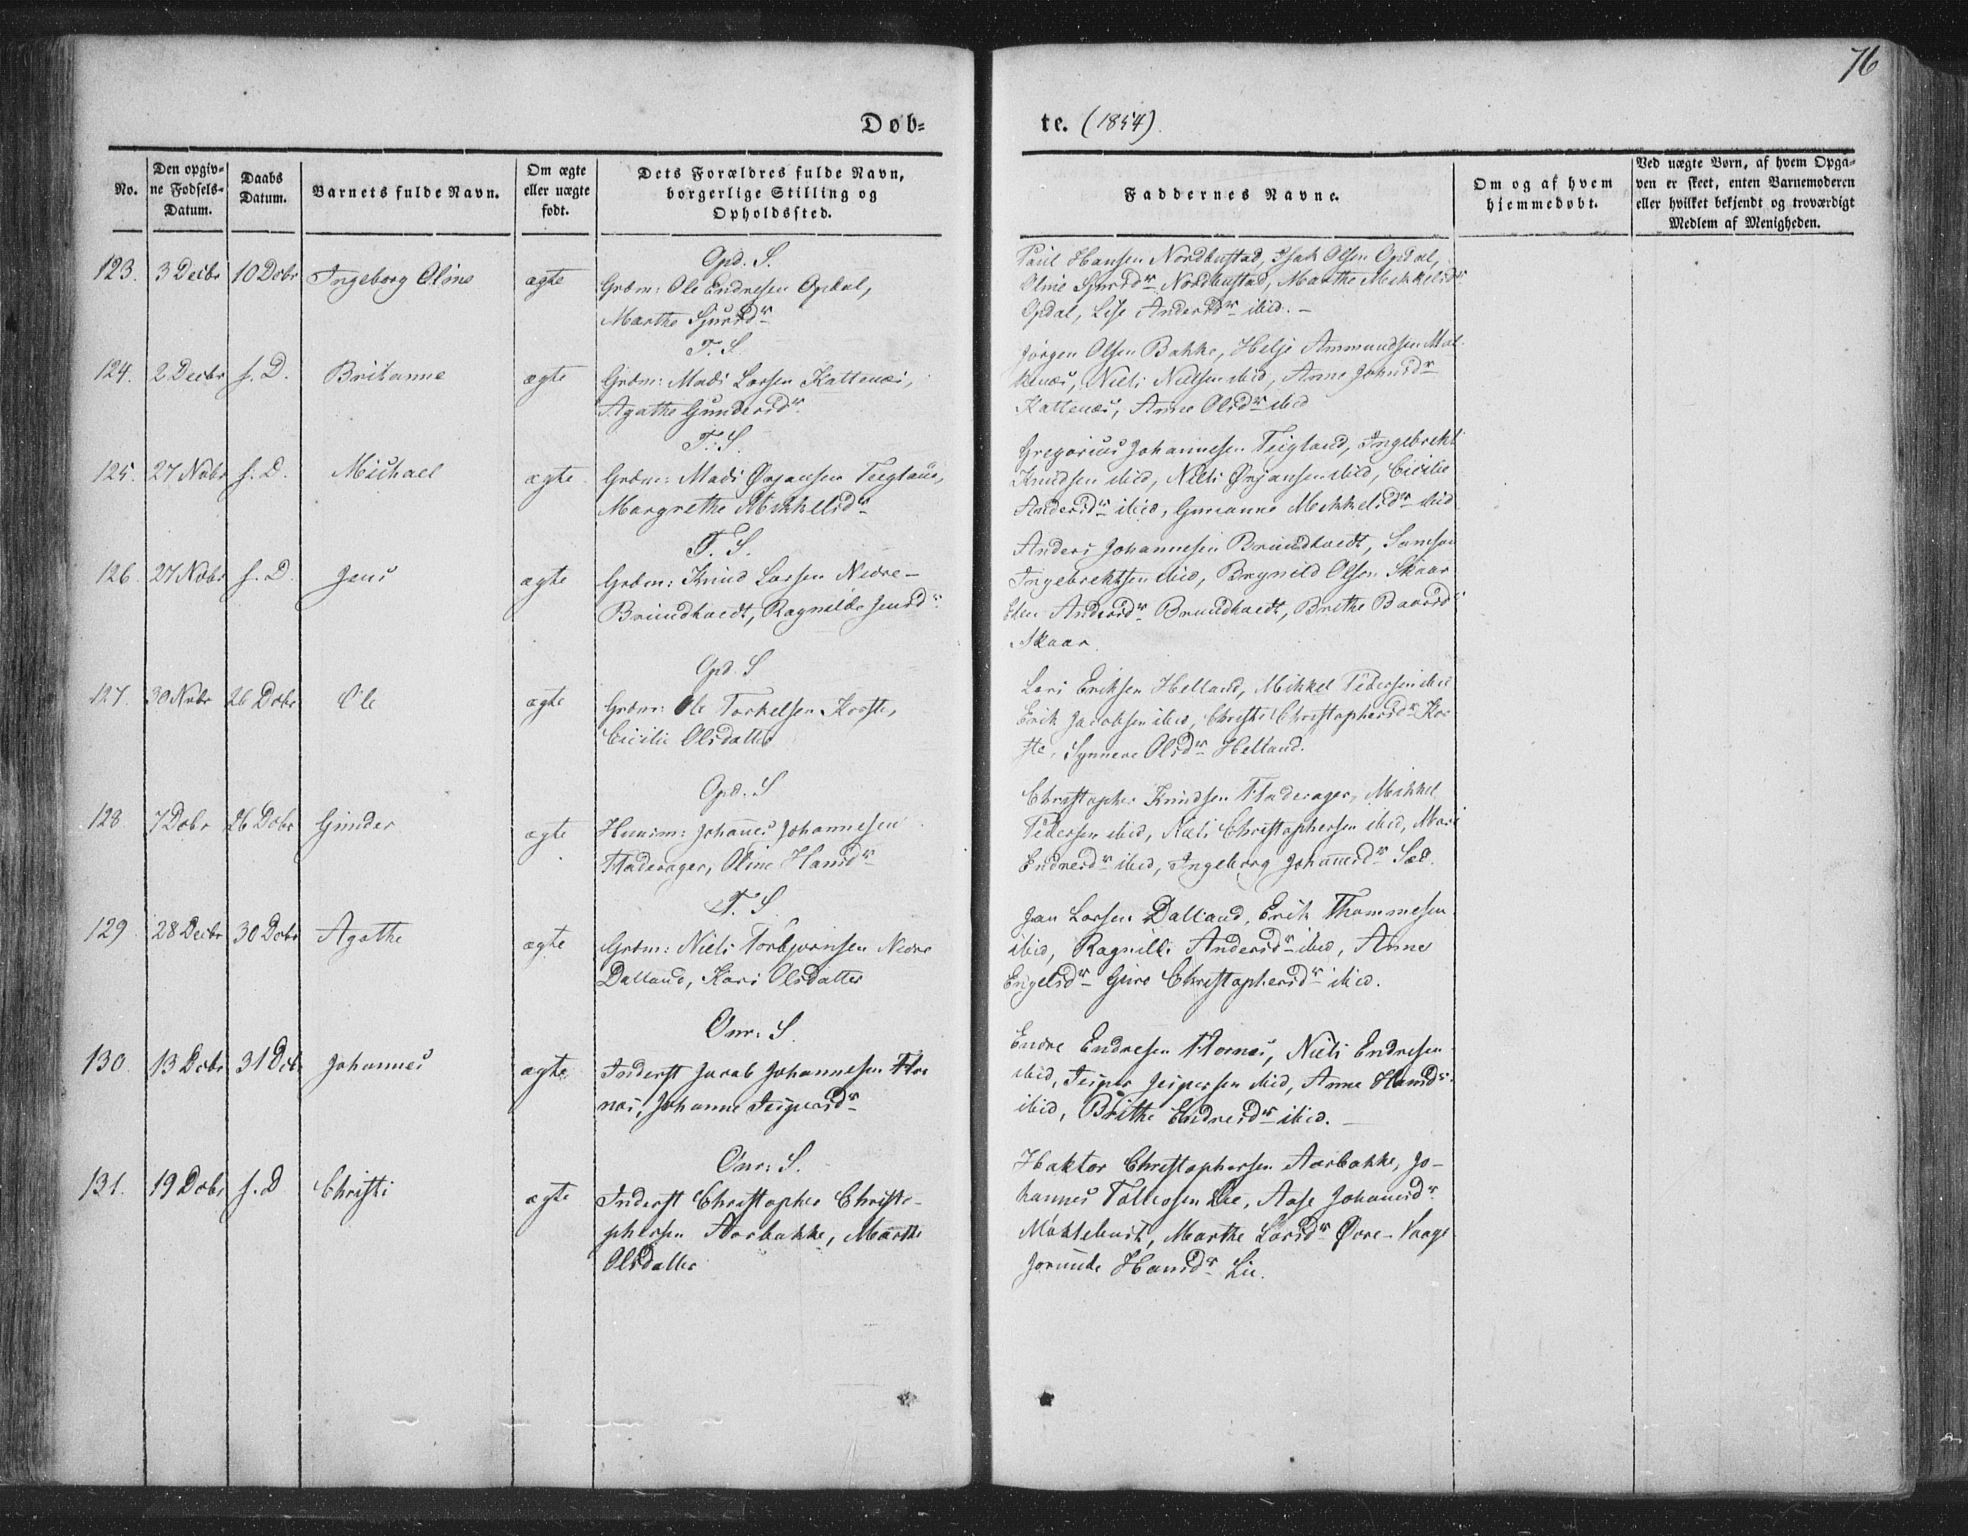 76
Døb-
te. (1854)
No.
Den opgiv-
ne Fødsels-
Datum.
Daabs
Datum.
Barnets fulde Navn.
Om ægte
eller uægte
født.
Dets Forældres fulde Navn,
borgerlige Stilling og
Opholdssted.
Faddernes Navne.
Om og af hvem
hjemmedøbt.
Ved uægte Børn, af hvem Opga-
ven er skeet, enten Barnemoderen
eller hvilket bekjendt og troværdigt
Medlem af Menigheden.
Opd. S.
123. 3 Decbr 10 Dcbr Ingeborg Oline ægte Grdm: Ole Endresen Opdal,
Marthe Sjursdr
Paul Hansen Nordhustad, Isak Olsen Opdal,
Oline Sjursdr Nordhustad, Marthe Mikkelsdr
Opdal, Lise Andersdr ibid. –
T. S.
124. 2 Decbr s. D. Britanne ægte Grdm: Mads Larsen Kattenæs,
Agathe Gundersdr
Jørgen Olsen Bakke, Helje Ammundsen Mal-
kenæs, Niels Nielsen ibid, Anne Johnsdr
Kattenæs, Anne Olsdr ibid
T. S.
125. 27 Nvbr s. D. Michael ægte Grdm: Mads Ørjansen Teigland,
Margrethe Mikkelsdr
Gregorius Johannesen Teigland, Ingebrekt
Knudsen ibid, Niels Ørjansen ibid, Cicilie
Andersdr ibid, Gurianne Mikkelsdr ibid
T. S.
126. 27 Nvbr s. D. Jens ægte Grdm: Knud Larsen Nedre-
Brundtvedt, Ragnilde Jensdr
Anders Johannesen Brundtvedt, Samson
Ingebrektsen ibid, Brynild Olsen Skaar
Elen Andersdr Brundtvedt, Brithe Baarsdr
Skaar.
Opd. S
127. 30 Nvbr 26 Dcbr Ole ægte Grdm: Ole Torkelsen Koste,
Cicilie Olsdatter
Lars Eriksen Helland, Mikkel Pedersen ibid
Erik Jacobsen ibid, Christi Christophersdr Ko-
ste, Synneve Olsdr Helland.
Opd. S
128 7 Dcbr 26 Dcbr Gunder ægte Huusm: Johannes Johannesen
Fladerager, Oline Hansdr
Christopher Knudsen Fladerager, Mikkel
Pedersen ibid, Niels Christophersen ibid, Mari
Endresdr ibid, Ingeborg Johannesdr Sæd.
T. S.
129 28 Decbr 30 Dcbr Agathe ægte Grdm: Niels Torbjørnsen Nedre
Dalland, Kari Olsdatter
Jan Larsen Dalland, Erik Thommesen
ibid, Ragnille Andersdr ibid, Anne
Engelsdr Guro Christophersdr ibid.
Onr: S.
130. 13 Dcbr 31 Dcb Johannes ægte Inderst Jacob Johannesen Hor
næs, Johanne Jespersdr
Endre Endresen Hornæs, Niels Endresen
ibid, Jesper Jespersen ibid, Anne Hansdr
ibid, Brithe Endresdr ibid. –
Onr: S.
131. 19 Dcbr s. D Christi ægte Inderst Christopher Christo-
phersen Aarbakke, Marthe
Olsdatter
Haktor Christophersen Aarbakke, Jo-
hannes Tollefsen Lie, Aase Johannesdr
Møkleburst, Marthe Larsdr Øvre-Vaage
Jorunde Hansdr Lie.